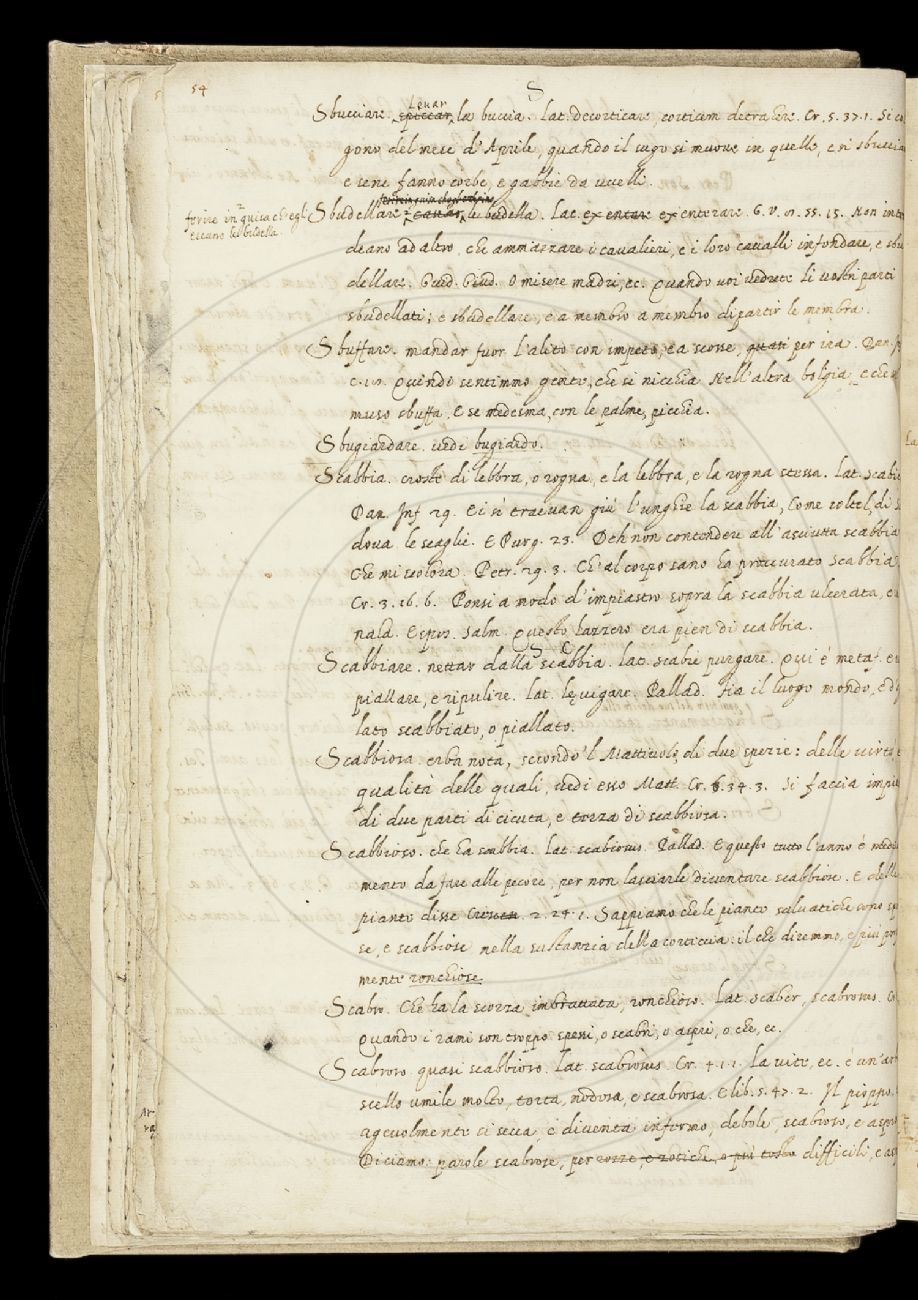 54
S
Sbucciare. spiccar, Levar la buccia. Lat. decorticare, corticem detrahere. Cr. 5. 37. 1. Si co
gono del mese d'Aprile, quando il sugo si muove in quelle, e si sbuccia
e sene fanno corbe, e gabbie da uccelli.
ferire in guisa ch'egli
escano le budella.
Sbudellare. cavar, le budella. Lat. exentare exenterare. G. V. 55. 15. Non inte
deano ad altro, che ammazzare i cavalieri, e i loro cavalli infondare, e sbu
dellare. Guid. Giud. O misere madri, ec. Quando voi vedrete li vostri parti
sbudellati; e sbudellare, e a membro a membro dipartir le membra.
Sbuffare. mandar fuor l'alito con impeto, e a scosse, quasi per ira. Dan.
c. 18. Quindi sentimmo gente, che si nicchia Nell'altra bolgia, e che
muso sbuffa, E se medesma, con le palme, picchia.
Sbugiardare. vedi bugiardo.
Scabbia. croste di lebbra, o rogna, e la lebbra, e la rogna stessa. Lat. scabie
Dan. Inf. 29. E si traevan giù l'unghie la scabbia, Come coltel, di s
dova le scaglie. E Purg. 23. Deh non contendere all'asciutta scabbia
Che mi scolora. Petr. 29. 3. Ch'al corpo sano ha procurato scabbia
Cr. 3. 16. 6. Ponsi a modo d'impiastro sopra la scabbia ulcerata,
Espos. Salm. Questo Lazzero era pien di scabbia.
Scabbiare. nettar dalla scabbia. Lat. scabie purgare. Qui è metaf. e
piallare, e ripulire. Lat. levigare. Pallad. Sia il luogo mondo, e d
lato scabbiato, o piallato.
Scabbiosa. erba nota, secondo 'l Mattiuolo, di due spezie: delle virtù,
qualità delle quali, vedi esso Matt. Cr. 6. 34. 3. Si faccia impia
di due parti di cicuta, e terza di scabbiosa.
Scabbioso. che ha scabbia. Lat. scabiosus. Pallad. E questo tutto l'anno è medi
mento da fare alle pecore, per non lasciarle diventare scabbiose. E delle
piante disse Crescen. 2. 24. 1. Sappiamo che le piante salvatiche sono sp
se, e scabbiose nella sustanzia della corteccia: il che diremmo, e più pro
mente ronchiose.
Scabro. Che ha la scorza imbrattata, ronchioso. Lat. scaber, scabrosus. C
Quando i rami son troppo spessi, o scabri, o aspri, o che, ec.
Scabroso. quasi scabbioso. Lat. scabrosus. Cr. 4. 1. 1. La vite, ec. è un'ar
scello umile molto, torta, nodosa, e scabrosa. E lib. 5. 47. 2. Il pioppo
agevolmente si secca, e diventa infermo, debole, scabroso, e aspro
Diciamo: parole scabrose, per rozze, e rotiche, o più tosto difficili, e as